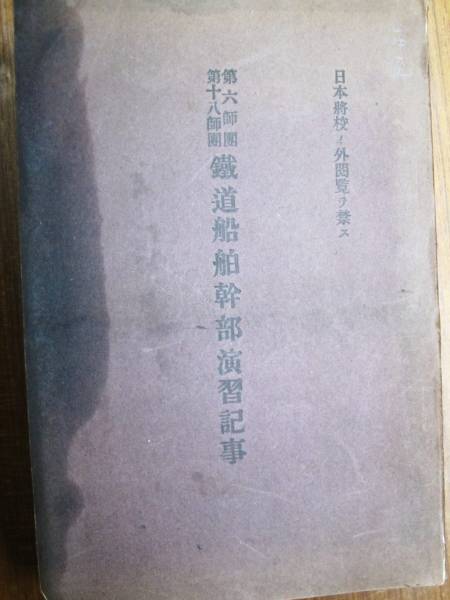 日本將校ノ外閲覧ヲ禁ス
第六師團
第十八師團
鐵道船舶幹部演習記事